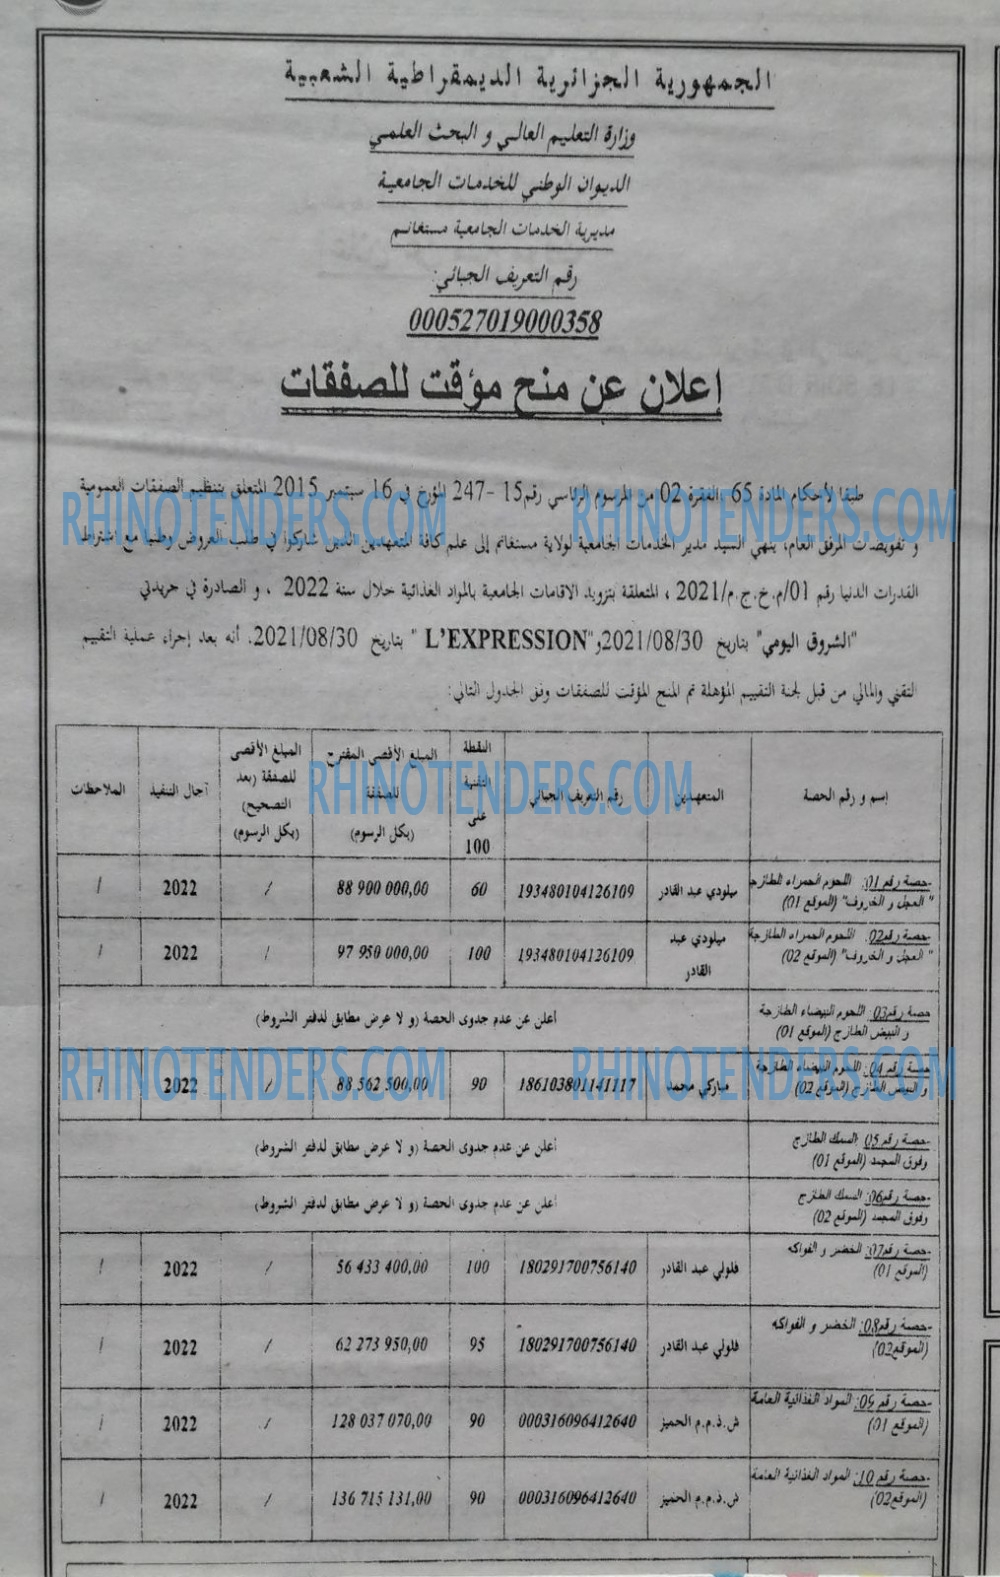 الجمهورية الجزائرية الديمقراطية الشعبية
وزارة التعليم العالي و البحث العلمي
الديوان الوطني للخدمات الجامعية
مديرية الخدمات الجامعية مستغانم
رقم التعريف الجبائي:
000527019000358
إعلان عن منح مؤقت للصفقات
طبقا لأحكام المادة 65 الفقرة 02 من المرسوم الرئاسي رقم15-247 المؤرخ في 16 سبتمبر 2015 المتعلق بتنظيم الصفقات العمومية
و تفويضات المرفق العام، ينهي السيد مدير الخدمات الجامعية لولاية مستغانم إلى علم كافة المتعهدين الذين شاركوا في طلب العروض وطنيا مع اشتراط
القدرات الدنيا رقم 01/م.خ.ج.م/2021 ، المتعلقة بتزويد الاقامات الجامعية بالمواد الغذائية خلال سنة 2022 ، و الصادرة في جريدتي
"الشروق اليومي" بتاريخ 2021/08/30و"L'EXPRESSION " بتاريخ 2021/08/30. أنه بعد إجراء عملية التقييم
التقني والمالي من قبل لجنة التقييم المؤهلة تم المنح المؤقت للصفقات وفق الجدول التالي:
إسم و رقم الحصة | المتعهدين | رقم التعريف الجبائي | النقطة التقنية على 100 | المبلغ الأقصى المقترح للصفقة (بكل الرسوم) | المبلغ الأقصى للصفقة (بعد التصحيح) (بكل الرسوم) | آجال التنفيذ | الملاحظات
-حصة رقم 01: اللحوم الحمراء الطازجة "العجل و الخروف" (الموقع 01) | ميلودي عبد القادر | 193480104126109 | 60 | 88 900 000,00 | / | 2022 | /
-حصة رقم02: اللحوم الحمراء الطازجة "العجل و الخروف" (الموقع 02) | ميلودي عبد القادر | 193480104126109 | 100 | 97 950 000,00 | / | 2022 | /
حصة رقم03: اللحوم البيضاء الطازجة و البيض الطازج (الموقع 01) | أعلن عن عدم جدوى الحصة (و لا عرض مطابق لدفتر الشروط)
حصة رقم 04: اللحوم البيضاء الطازجة و البيض الطازج (الموقع 02) | مباركي محمد | 186103801141117 | 90 | 88 562 500,00 | / | 2022 | /
-حصة رقم 05: السمك الطازج وفوق المجمد (الموقع 01) | أعلن عن عدم جدوى الحصة (و لا عرض مطابق لدفتر الشروط)
-حصة رقم06: السمك الطازج وفوق المجمد (الموقع 02) | أعلن عن عدم جدوى الحصة (و لا عرض مطابق لدفتر الشروط)
-حصة رقم07: الخضر و الفواكه (الموقع 01) | فلولي عبد القادر | 180291700756140 | 100 | 56 433 400,00 | / | 2022 | /
-حصة رقم08: الخضر و الفواكه (الموقع02) | فلولي عبد القادر | 180291700756140 | 95 | 62 273 950,00 | / | 2022 | /
-حصة رقم 09: المواد الغذائية العامة (الموقع 01) | ش.ذ.م.م الحميز | 000316096412640 | 90 | 128 037 070,00 | / | 2022 | /
-حصة رقم 10: المواد الغذائية العامة (الموقع02) | ش.ذ.م.م الحميز | 000316096412640 | 90 | 136 715 131,00 | / | 2022 | /
RHINOTENDERS.COM RHINOTENDERS.COM
RHINOTENDERS.COM
RHINOTENDERS.COM RHINOTENDERS.COM